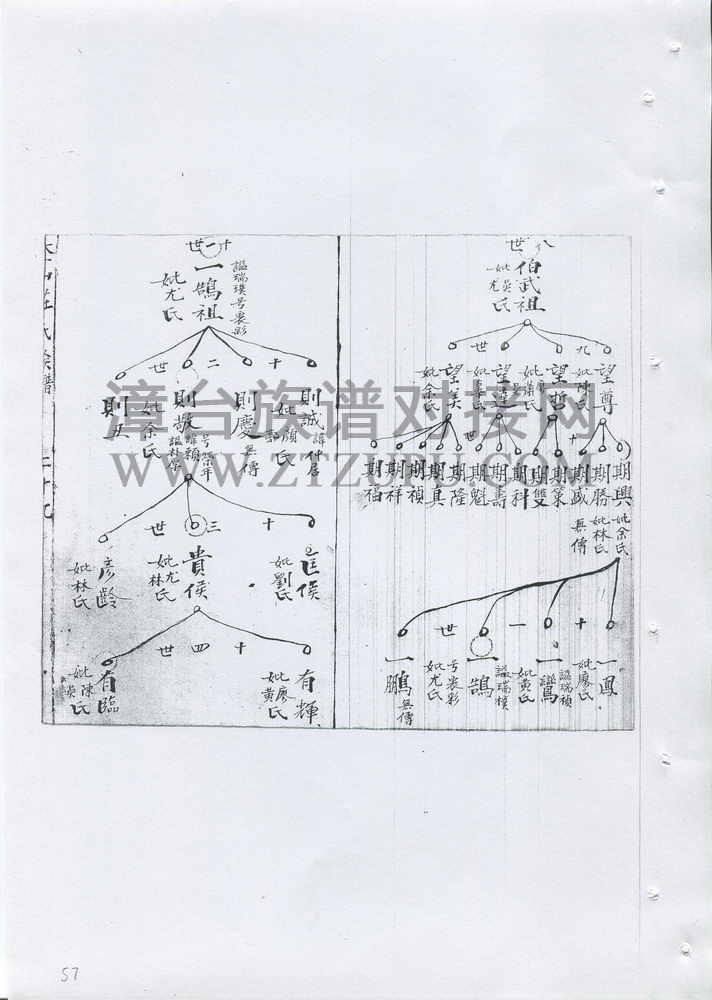 八世
伯武祖
妣吳尤氏
九世
望尊
妣陳氏
望哲
妣蕭廖氏
望達
妣姜氏
望美
妣余氏
十
期興
妣余氏
期勝
妣林氏
期盛
無傳
期篆
期雙
期科
期壽
期魁
期隆
期真
期禎
期祥
期福
十一世
一鳳
妣廖氏
一鸞
謚瑞楨
妣黃氏
一鵠
謚瑞樸
号裘彩
妣尤氏
一鵬
無傳
十一世
一鵠祖
謚瑞璞号裘彩
妣尤氏
十二世
則誠
諱仲居
妣顏郭氏
則慶
無傳
則敬
号榮年
諱穎
謚朴厚
妣余氏
則五
十三世
匡侯
妣劉氏
貴侯
妣尤林氏
彥齡
妣林氏
十四世
有輝
妣廖黃氏
有臨
妣陳吳氏
氏族譜
漳台族谱对接网
WWW.ZTZUPU.COM
57